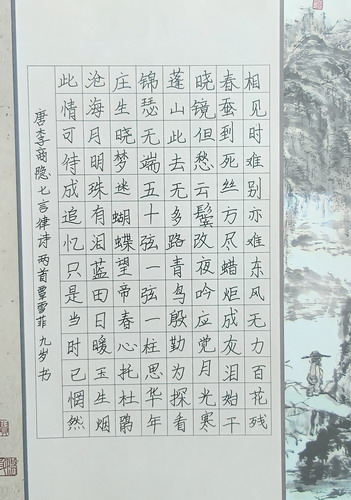 相见时难别亦难东风无力百花残
春蚕到死丝方尽蜡炬成灰泪始干
晓镜但愁云鬓改夜吟应觉月光寒
蓬山此去无多路青鸟殷勤为探看
锦瑟无端五十弦一弦一柱思华年
庄生晓梦迷蝴蝶望帝春心托杜鹃
沧海月明珠有泪蓝田日暖玉生烟
此情可待成追忆只是当时已惘然
唐李商隐七言律诗两首覃雪菲九岁书